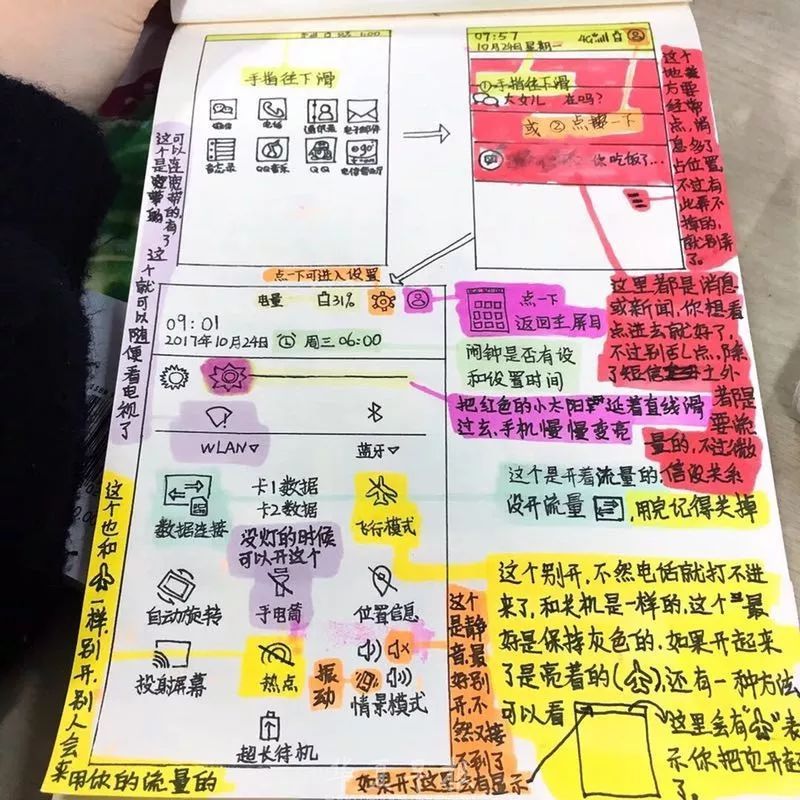 手指往下滑
微信
电话
通讯录
电子邮件
备忘录
QQ音乐
QQ
电信营业厅
07:57
4G
10月24日星期一
①手指往下滑
大女儿 在吗?
或②点一下
你吃饭了...
这个
地
方要
经常
点,消
息多了
占位置,
不过有
些弄不
掉的,
就别弄
了。
可以连宽带的,有了
这个是宽带的
这个就可以随便看电视了
点一下可进入设置
电量 31%
09:01
2017年10月24日 周三06:00
点一下
返回主屏目
闹钟是否有设
和设置时间
这里都是消息
或新闻,你想看
点进去就好了,
不过别乱点,除
了短信之外
都是
要流
量的,不过微
信没关系
把红色的小太阳延着直线滑
过去,手机慢慢变亮
WLAN
蓝牙
这个是开着流量的,
没开流量,用完记得关掉
数据连接
卡1数据
卡2数据
飞行模式
没灯的时候
可以开这个
自动旋转
手电筒
位置信息
投射屏幕
热点
振动
情景模式
超长待机
这个
是静
音,最
好别
开,不
然又接
不到了
这个别开,不然电话就打不进
来了,和关机是一样的,这个最
好是保持灰色的,如果开起来
了是亮着的(),还有一种方法
可以看
这里会有“”表
示你把它开起
了。
如果开了这里会有显示
这个也和一样,别开,别人会
来用你的流量的